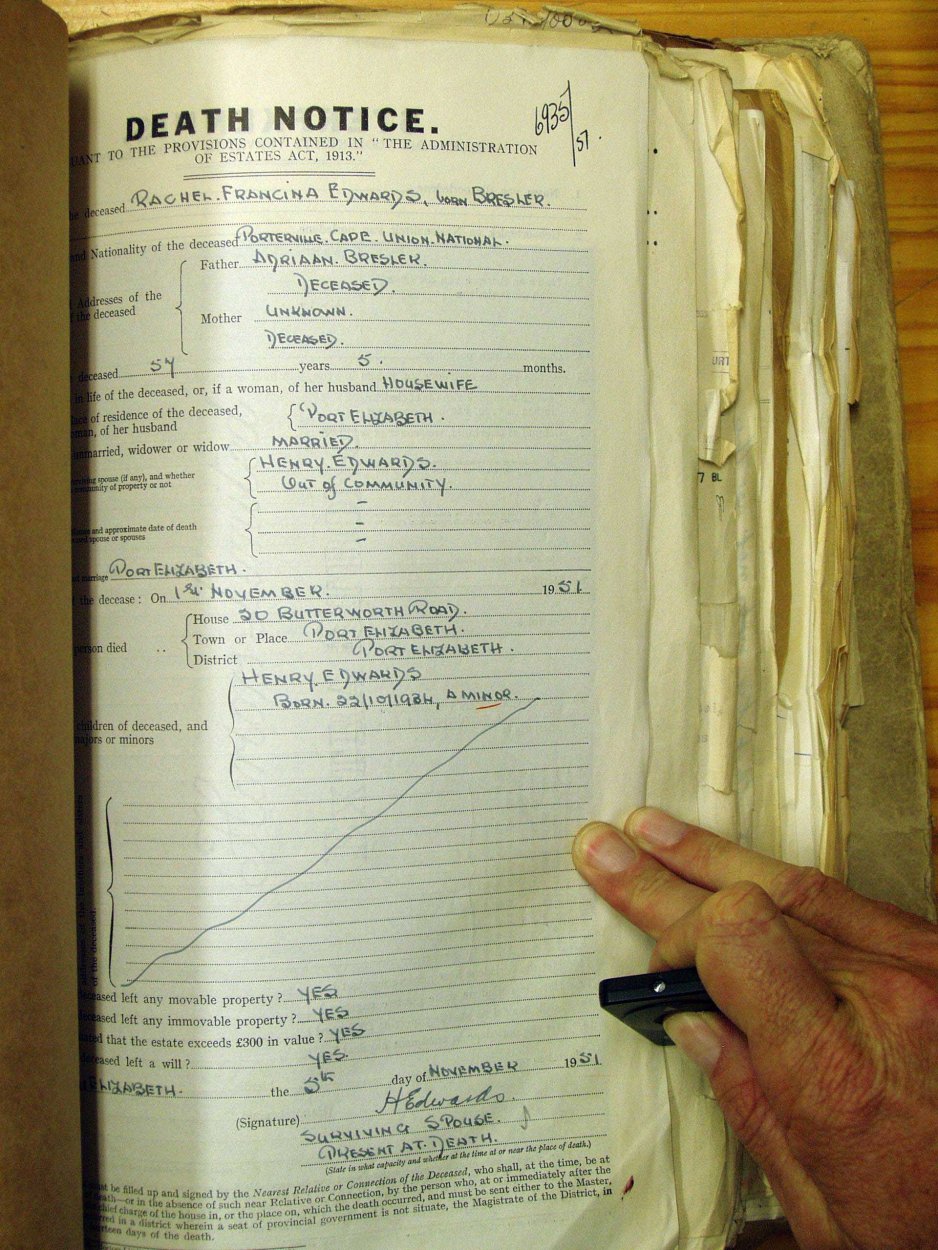 6935/51.
DEATH NOTICE.
UANT TO THE PROVISIONS CONTAINED IN "THE ADMINISTRATION
OF ESTATES ACT, 1913."
he deceased RACHEL. FRANCINA EDWARDS, born BRESLER.
and Nationality of the deceased PORTERVILLE. CAPE. UNION. NATIONAL.
Father ADRIAAN. BRESLER.
Addresses of the DECEASED.
f the deceased
Mother UNKNOWN.
DECEASED.
deceased 57 years 5. months.
in life of the deceased, or, if a woman, of her husband HOUSEWIFE
ace of residence of the deceased, PORT ELIZABETH.
man, of her husband
unmarried, widower or widow MARRIED.
rviving spouse (if any), and whether HENRY. EDWARDS.
community of property or not OUT of COMMUNITY.
–
ames and approximate date of death –
ased spouse or spouses –
of marriage PORT ELIZABETH.
f the decease: On 1st NOVEMBER. 1951
House 20 BUTTERWORTH ROAD.
person died .. Town or Place PORT ELIZABETH.
District PORT ELIZABETH.
HENRY. EDWARDS
BORN. 22/10/1934, A MINOR.
children of deceased, and
majors or minors
of the deceased.
eceased left any movable property? YES
eceased left any immovable property? YES
ated that the estate exceeds £300 in value? YES
deceased left a will? YES.
ELIZABETH. the 5th day of NOVEMBER 1951
(Signature) HEdwards.
SURVIVING SPOUSE.
PRESENT AT DEATH.
(State in what capacity and whether at the time at or near the place of death.)
must be filled up and signed by the Nearest Relative or Connection of the Deceased, who shall, at the time, be at
eath—or in the absence of such near Relative or Connection, by the person who, at or immediately after the
chief charge of the house in, or the place on, which the death occurred, and must be sent either to the Master,
rred in a district wherein a seat of provincial government is not situate, the Magistrate of the District, in
rteen days of the death.
URT
7 BL